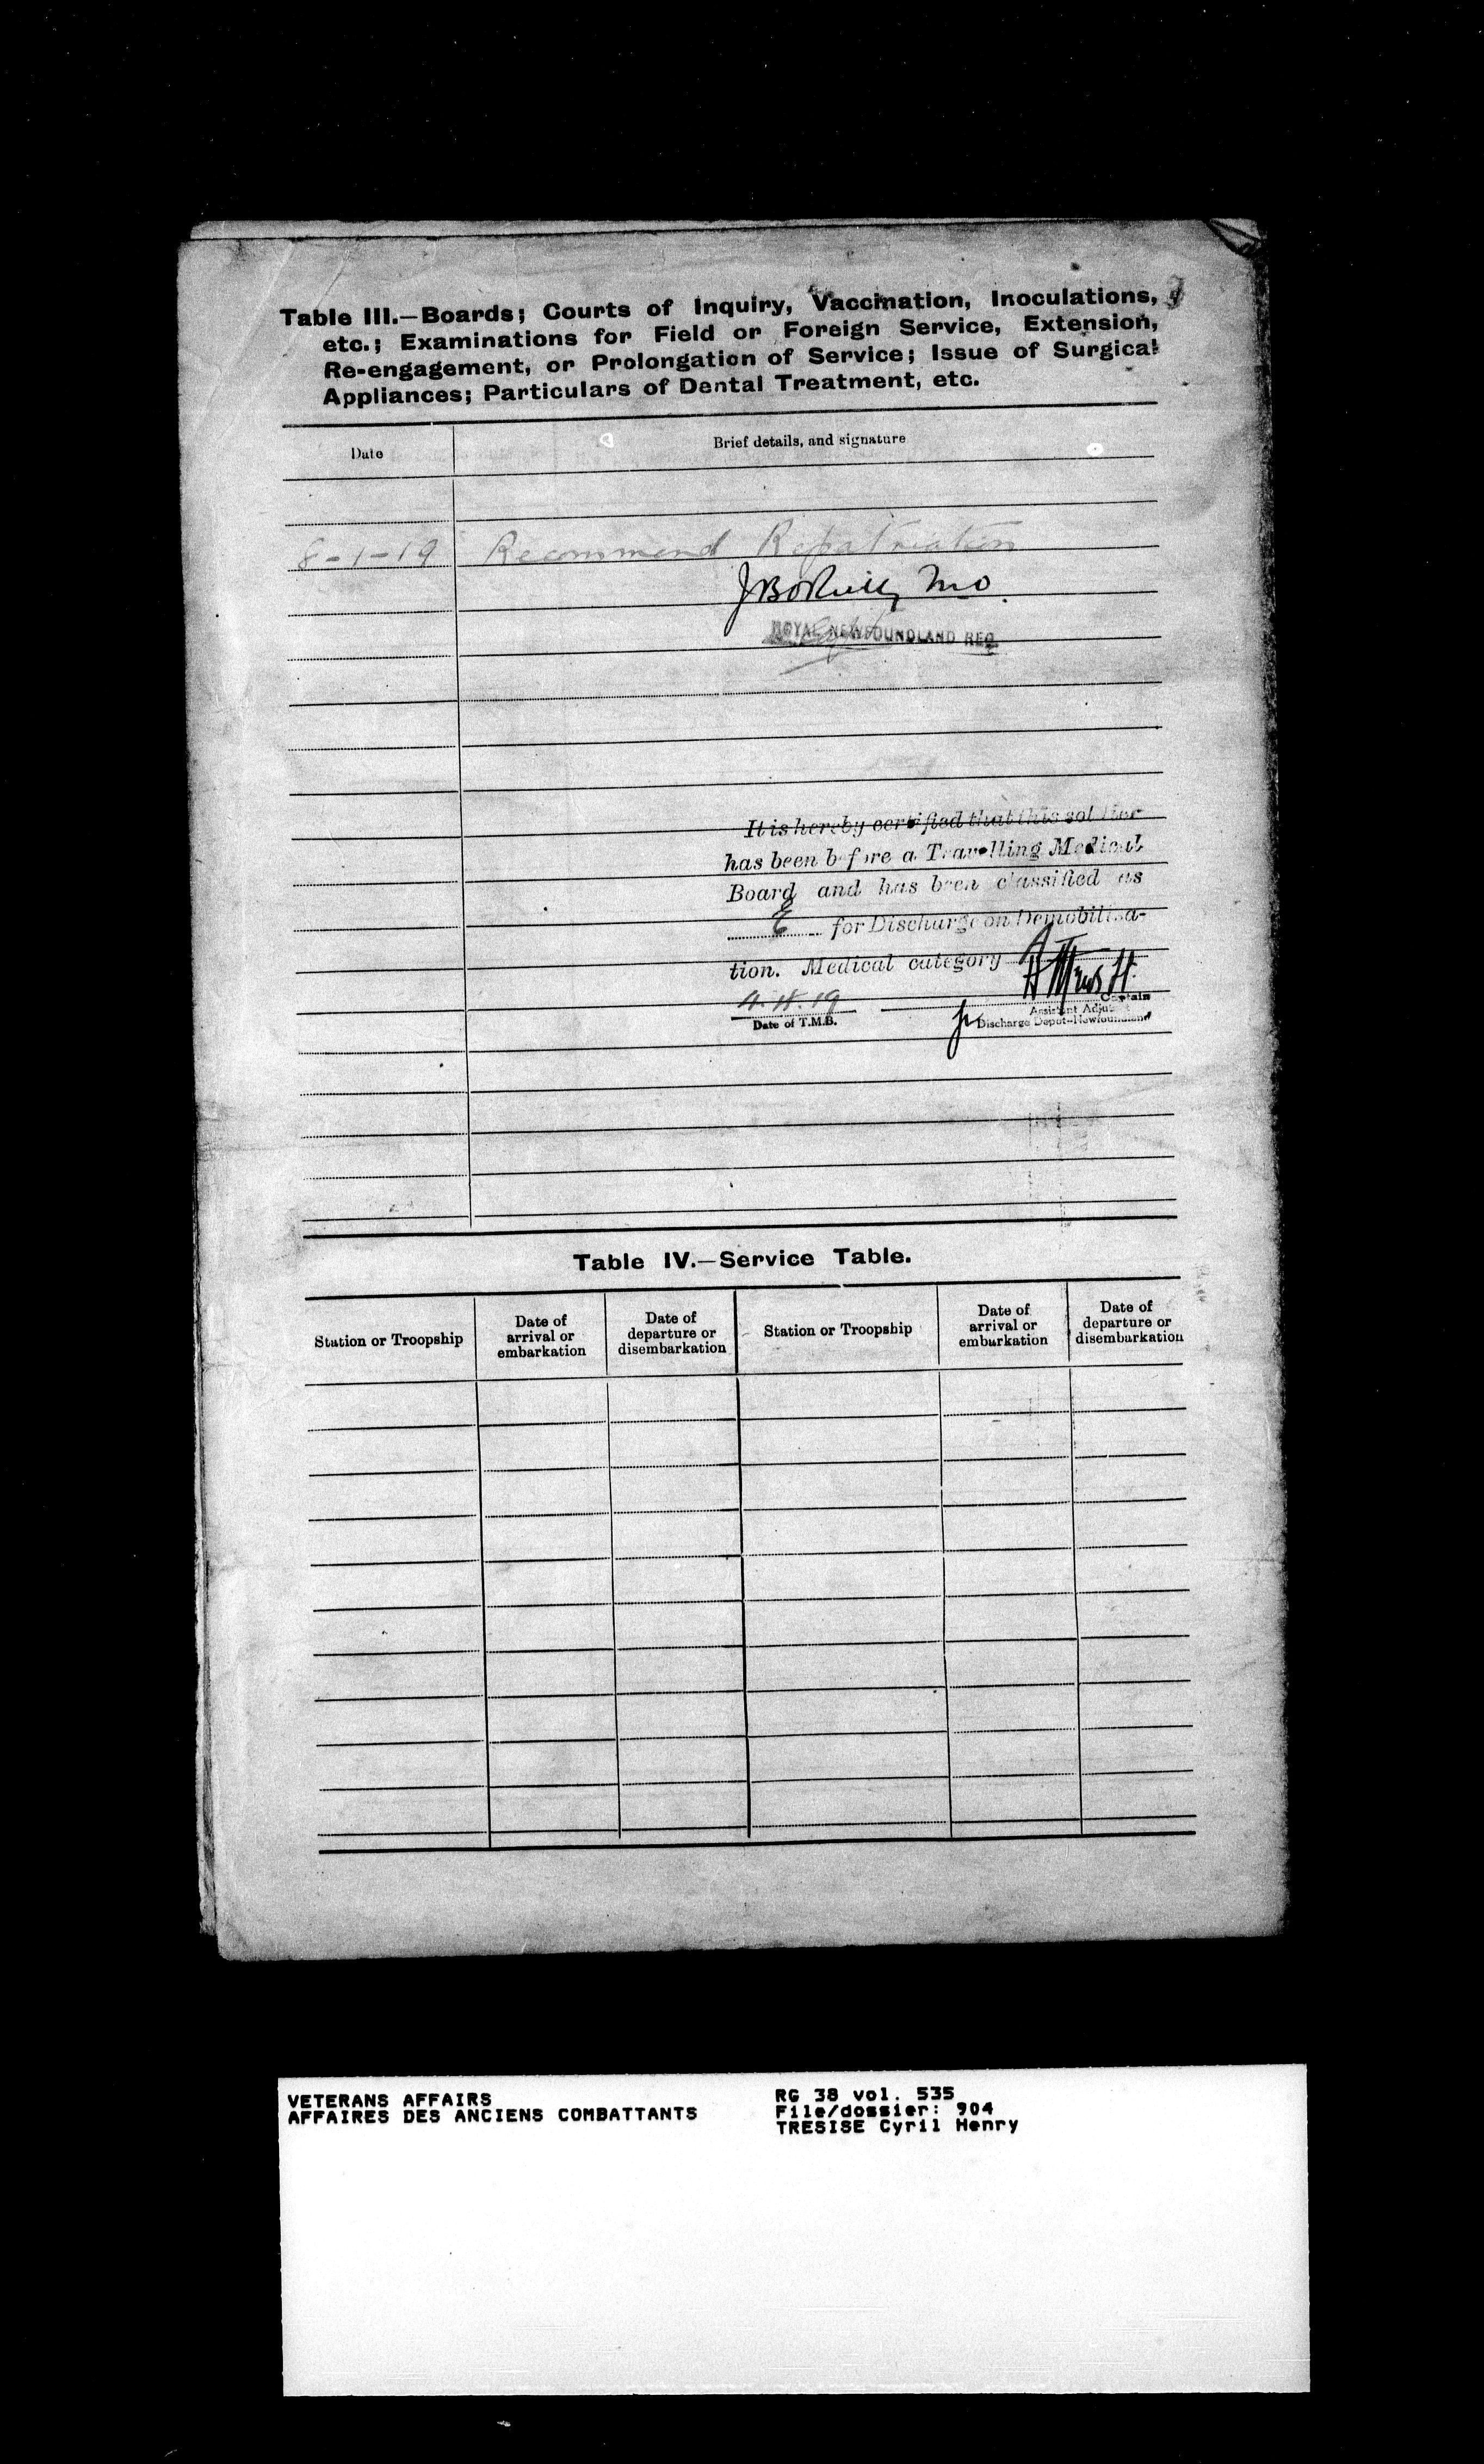 Table III.—Boards; Courts of Inquiry, Vaccination, Inoculations,
etc.; Examinations for Field or Foreign Service, Extension,
Re-engagement, or Prolongation of Service; Issue of Surgical
Appliances; Particulars of Dental Treatment, etc.
Date
Brief details, and signature
8-1-19 Recommend Repatriation
MO.
ROYAL NEWFOUNDLAND REG.
It is hereby certified that this soldier
has been before a Travelling Medical
Board and has been classified as
E for Discharge on Demobilisa-
tion. Medical category A
4.4.19
Date of T.M.B.
Captain
Assistant Adjutant
Discharge Depot-Newfoundland
Table IV.—Service Table.
Station or Troopship
Date of
arrival or
embarkation
Date of
departure or
disembarkation
Station or Troopship
Date of
arrival or
embarkation
Date of
departure or
disembarkation
VETERANS AFFAIRS
AFFAIRES DES ANCIENS COMBATTANTS
RG 38 vol. 535
File/dossier: 904
TRESISE Cyril Henry